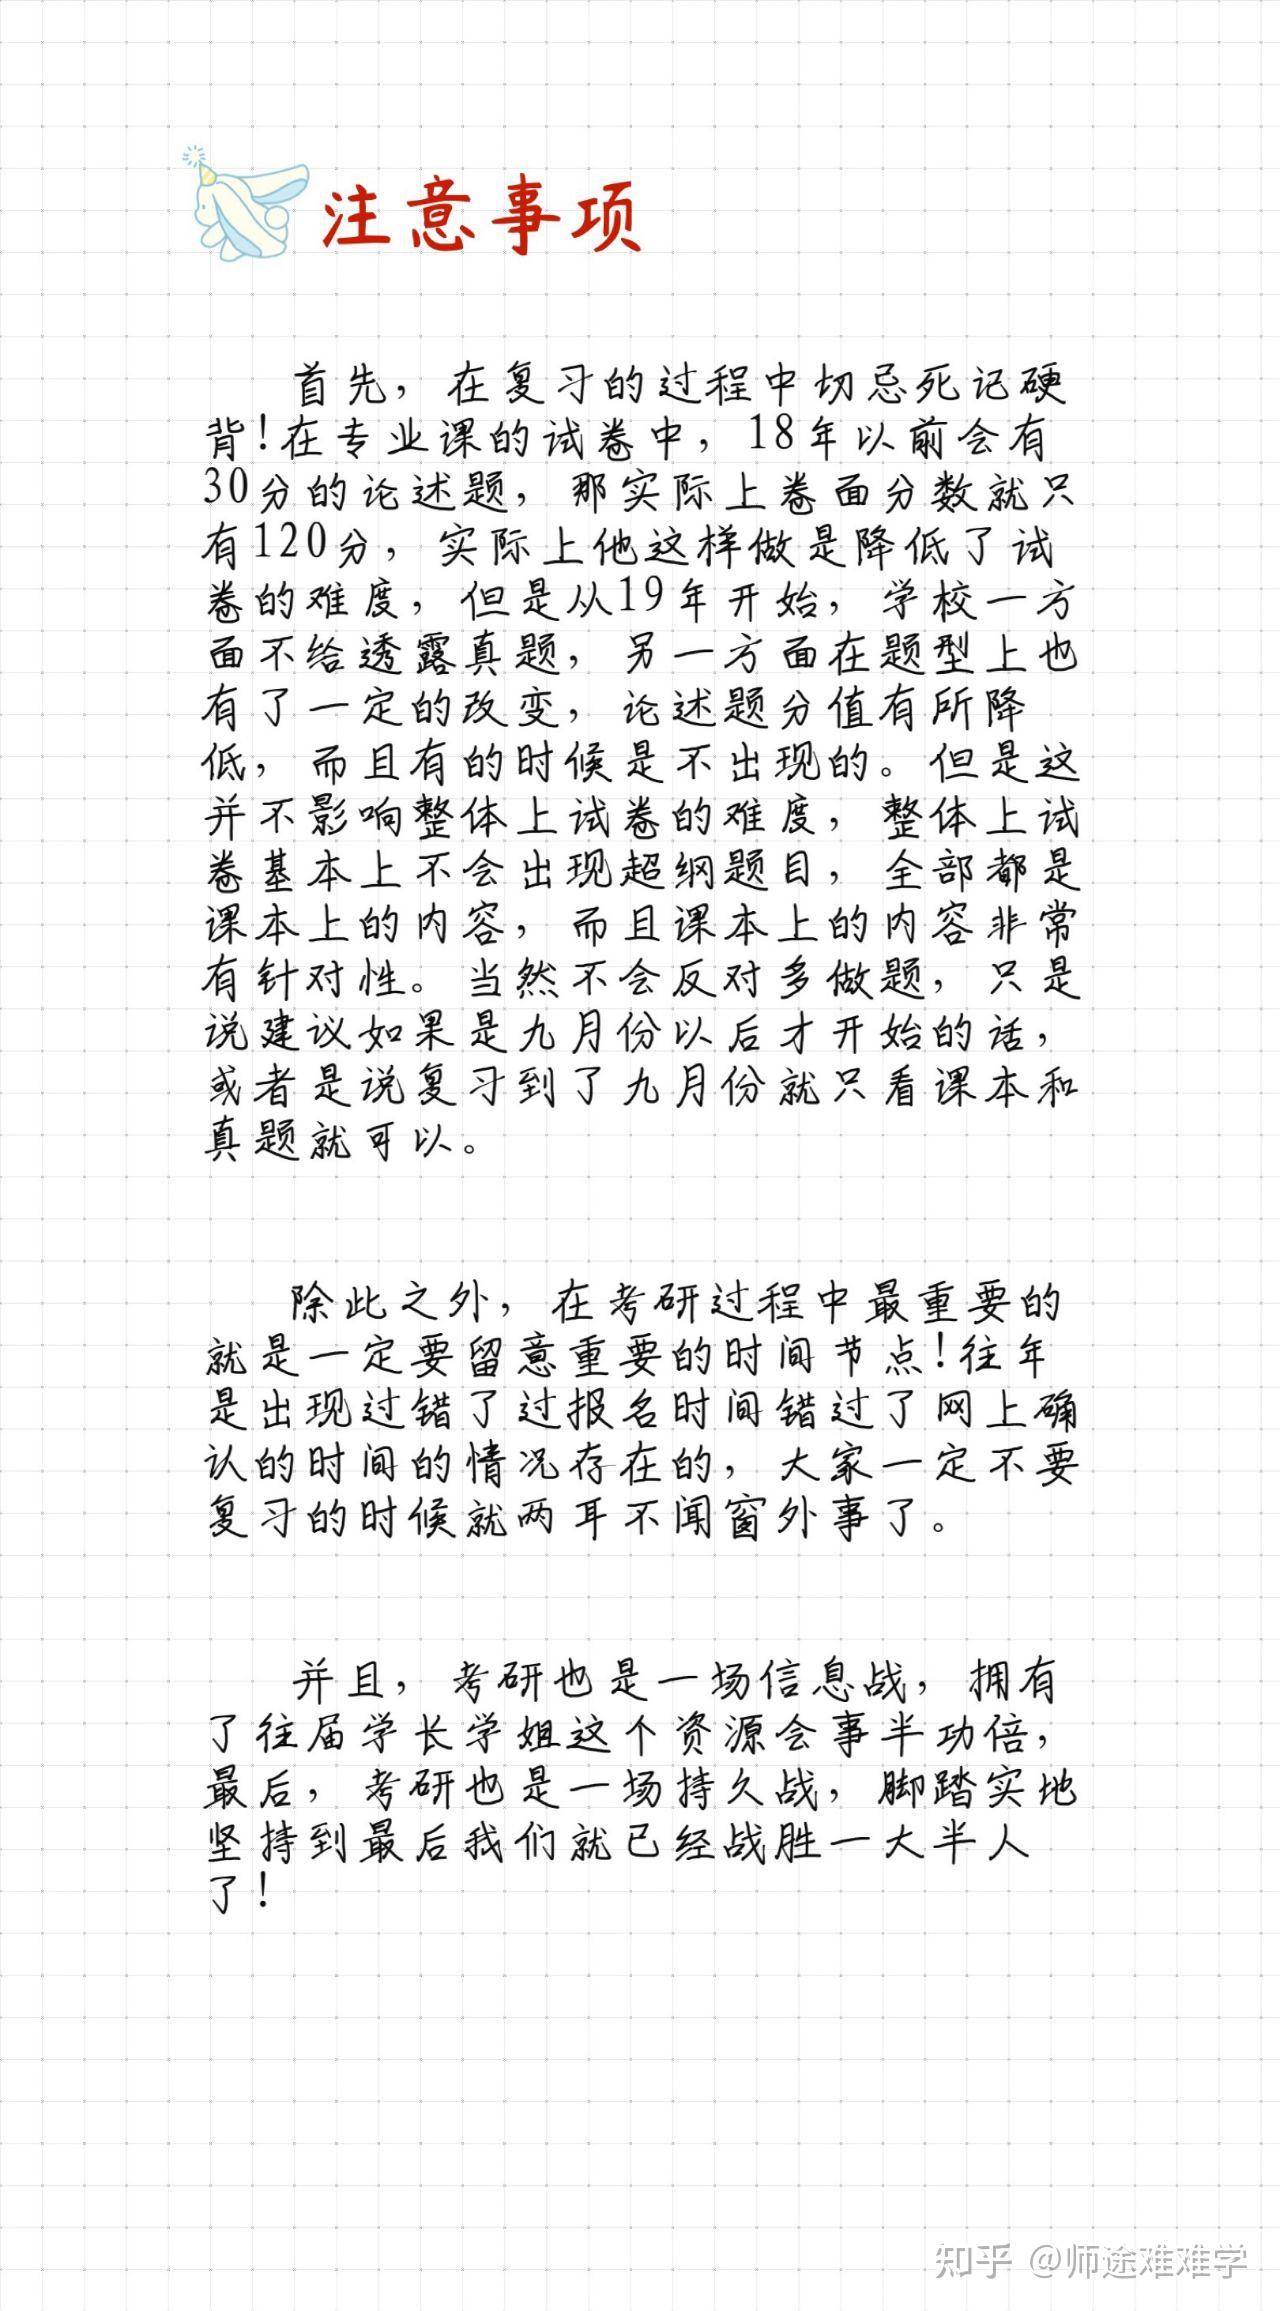 注意事项
首先，在复习的过程中切忌死记硬
背!在专业课的试卷中，18年以前会有
30分的论述题，那实际上卷面分数就只
有120分，实际上他这样做是降低了试
卷的难度，但是从19年开始，学校一方
面不给透露真题，另一方面在题型上也
有了一定的改变，论述题分值有所降
低，而且有的时候是不出现的。但是这
并不影响整体上试卷的难度，整体上试
卷基本上不会出现超纲题目，全部都是
课本上的内容，而且课本上的内容非常
有针对性。当然不会反对多做题，只是
说建议如果是九月份以后才开始的话，
或者是说复习到了九月份就只看课本和
真题就可以。
除此之外，在考研过程中最重要的
就是一定要留意重要的时间节点!往年
是出现过错了过报名时间错过了网上确
认的时间的情况存在的，大家一定不要
复习的时候就两耳不闻窗外事了。
并且，考研也是一场信息战，拥有
了往届学长学姐这个资源会事半功倍，
最后，考研也是一场持久战，脚踏实地
坚持到最后我们就已经战胜一大半人
了!
知乎 @师途难难学